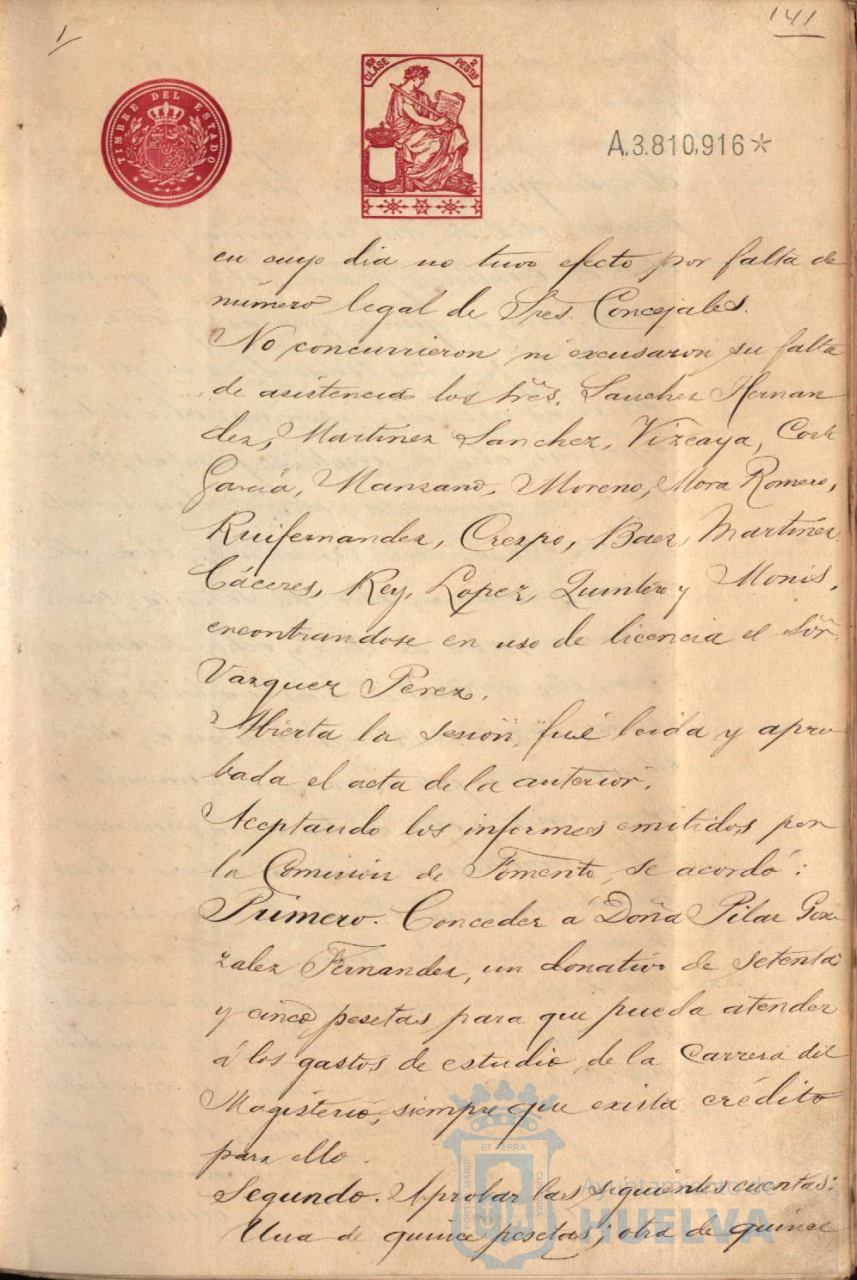 1
141
TIMBRE DEL ESTADO
10ª CLASE
2 PESTAS
A.3.810,916*
en cuyo dia no tuvo efecto por falta de
número legal de Sres. Concejales.
No concurrieron ni excusaron su falta
de asistencia los Sres. Sanchez Hernan
dez, Martinez Sanchez, Vizcaya,
García, Manzano, Moreno, Mora Romero,
Ruifernandez, Crespo, Baez, Martinez
Cáceres, Rey, Lopez, Quintero y Monis,
encontrandose en uso de licencia el Sor.
Vazquez Perez.
Abierta la sesión, fué leida y apro
bada el acta de la anterior.
Aceptando los informes emitidos por
la Comisión de Fomento, se acordó:
Primero. Conceder á Doña Pilar Gon
zalez Fernandez, un donativo de setenta
y cinco pesetas para que pueda atender
á los gastos de estudio de la Carrera del
Magisterio, siempre que exista crédito
para ello.
Segundo. Aprobar las siguientes cuentas:
Una de quince pesetas; otra de quince
PORTUS MARIS ET TERRÆ CUSTODIA
Ayuntamiento de
HUELVA